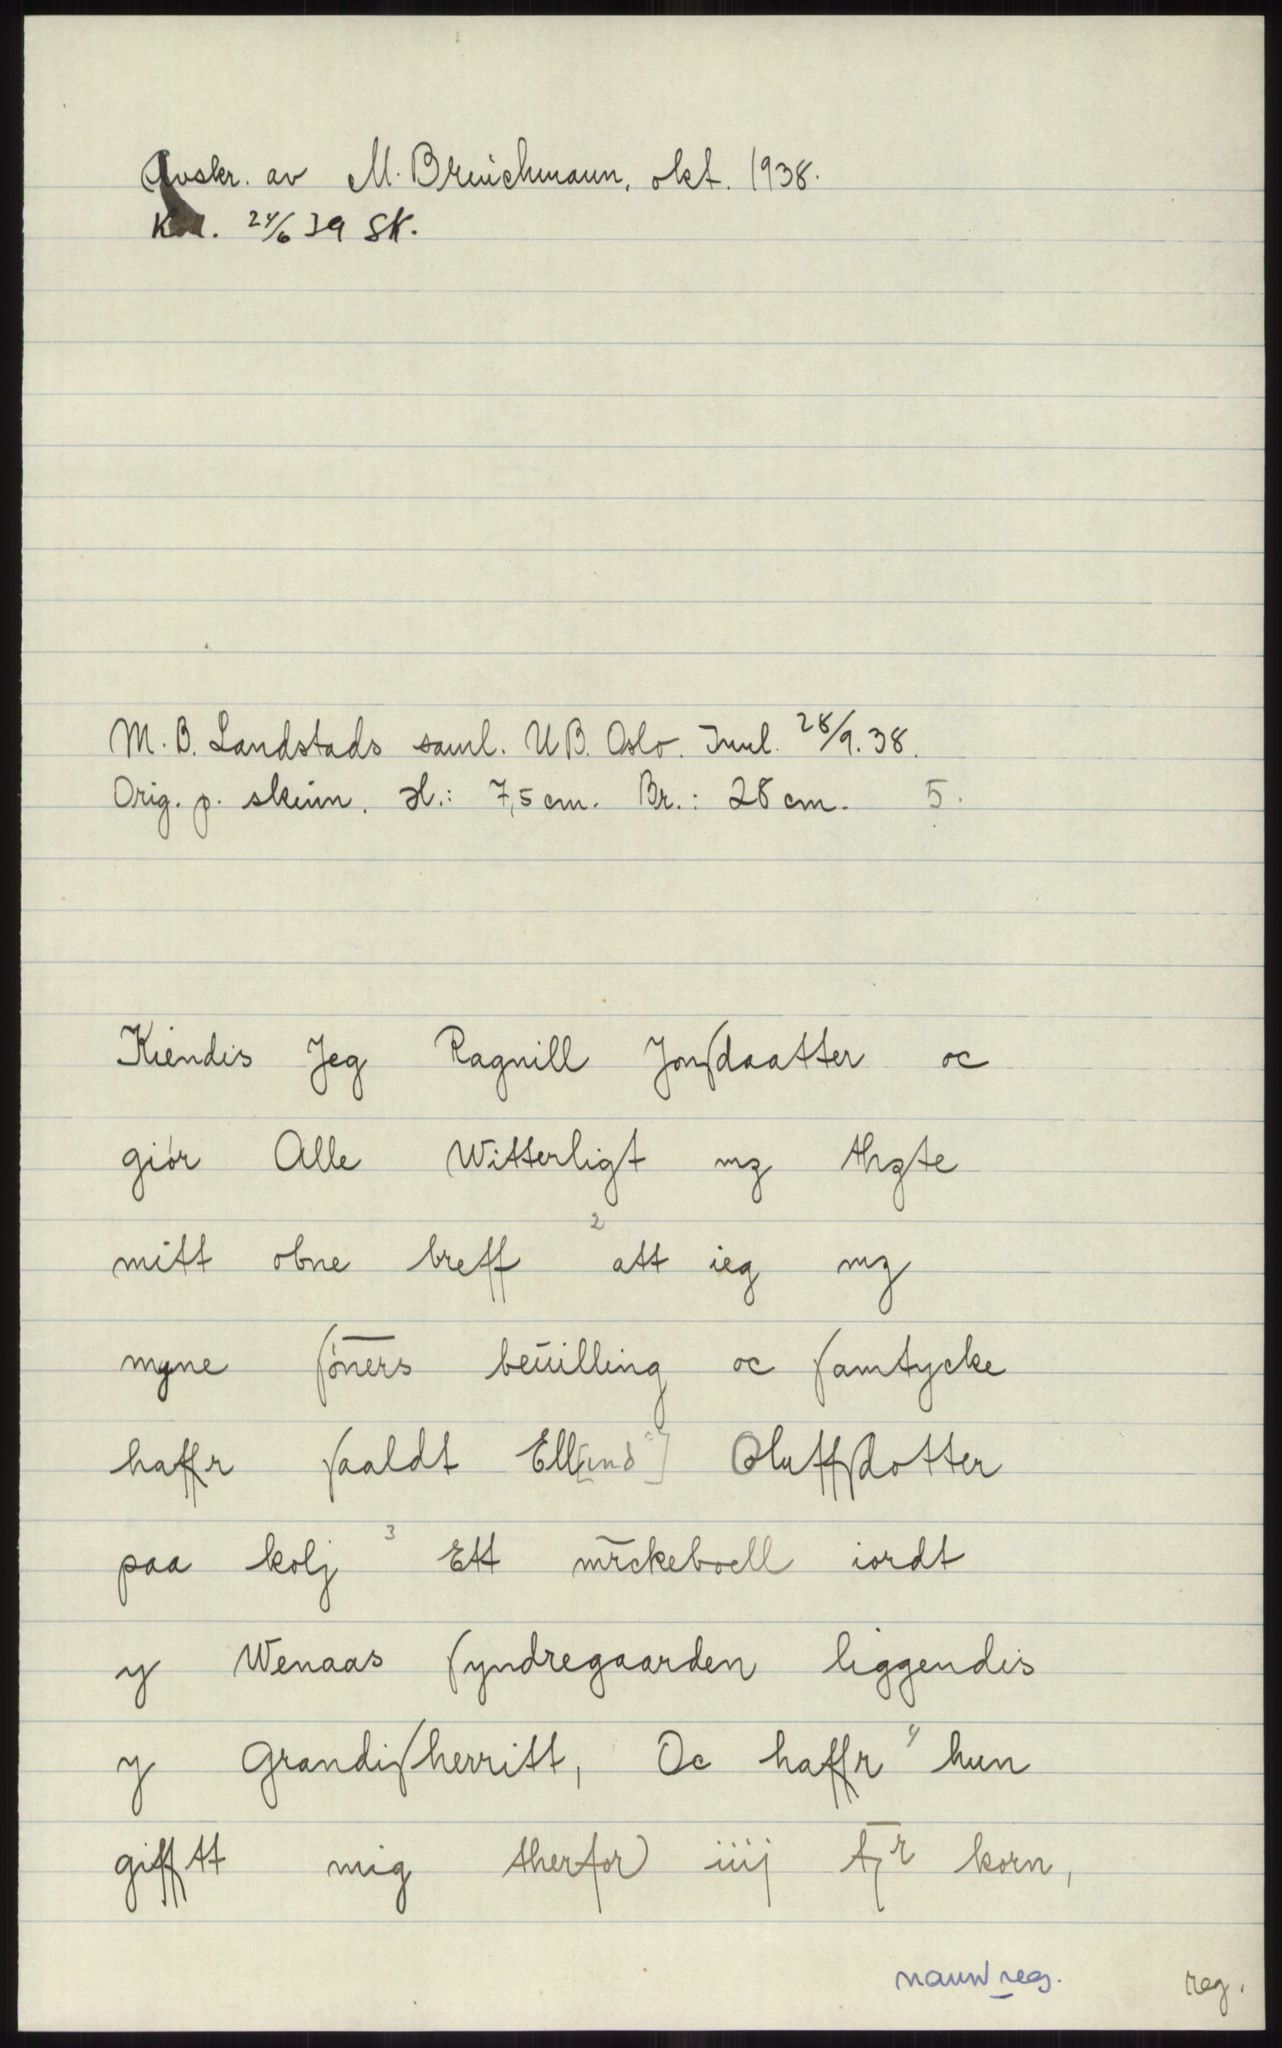 Avskr. av M. Brinchmann, okt. 1938.
Kol. 24/6 39 SK.
M. B. Landstads saml. UB. Oslo. Innl. 28/9. 38.
Orig. p. skinn. H.: 7,5 cm. Br.: 28 cm. 5.
Kiendis Jeg Ragnill Jonſdaatter oc
giór Alle Witterligt mꝫ thꝫte
mitt obne breff ² att ieg mꝫ
myne ſóners beuilling oc ſamtycke
haffr ſaaldt Ell[ind] Oluffſdotter
paa kolj ³ Ett mrckeboell iordt
y Wenaas ſyndregaarden liggendis
y Grandiſherritt, Oc haffr ⁴ hun
gifftt mig therfor iiij korn,
navnreg. reg.